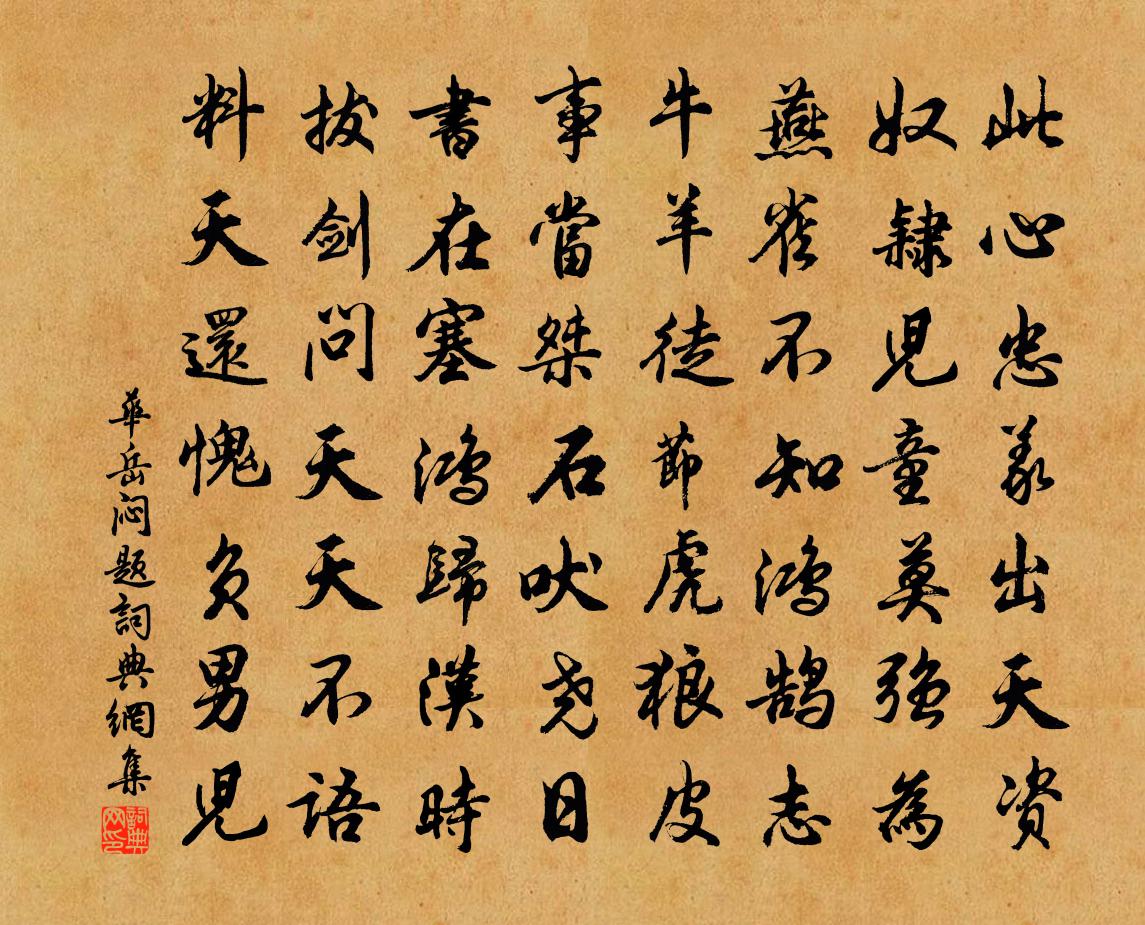 此心忠義出天資
奴隸兒童莫強為
燕雀不知鴻鵠志
牛羊徒莭虎狼皮
事當桀石吠尧日
書在塞鴻歸漢時
拔剑問天天不語
料天還愧負男兒
華岳闷题詞典網集
詞典网印